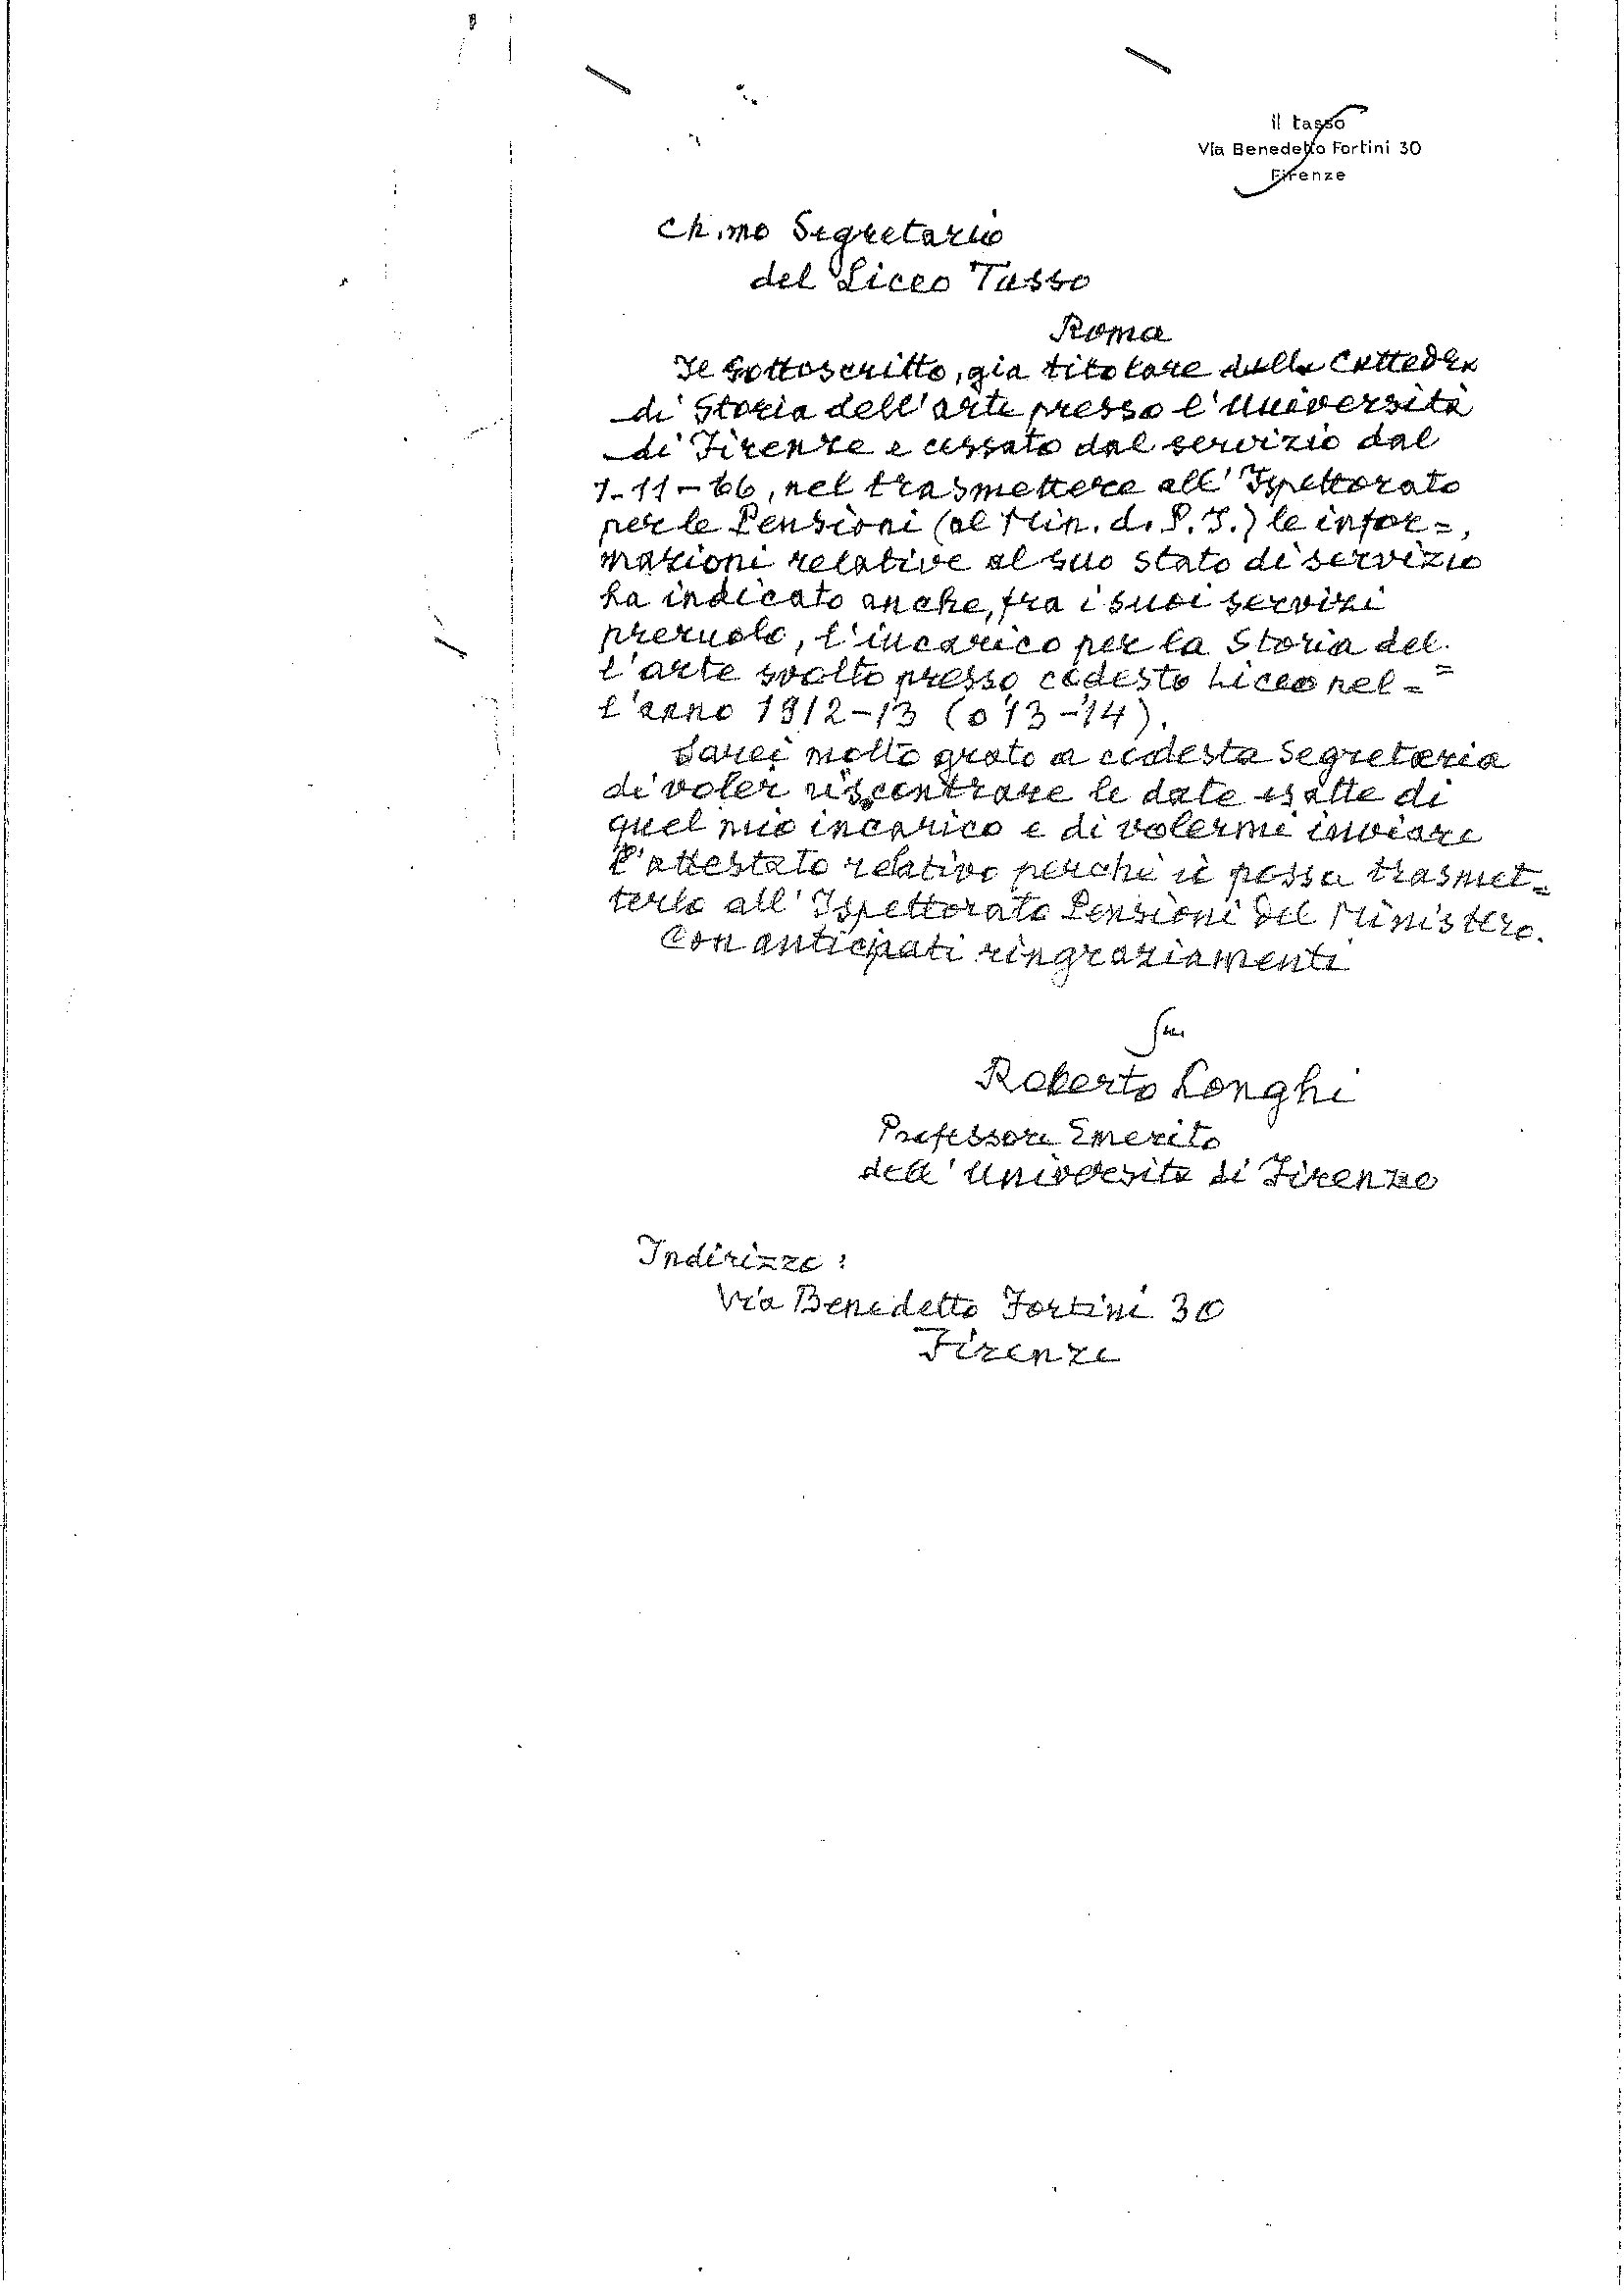 il tasso
Via Benedetto Fortini 30
Firenze
Ch.mo Segretario
del Liceo Tasso
Roma
Il sottoscritto, già titolare della Cattedra
di Storia dell'arte presso l'Università
di Firenze e cessato dal servizio dal
1-11-66, nel trasmettere all'Ispettorato
per le Pensioni (al Min. d. P. I.) le infor=
mazioni relative al suo stato di servizio
ha indicato anche, fra i suoi servizi
preruolo, l'incarico per la Storia del=
l'arte svolto presso codesto Liceo nel=
l'anno 1912-13 (o '13-'14).
Sarei molto grato a codesta Segreteria
di voler riscontrare le date esatte di
quel mio incarico e di volermi inviare
l'attestato relativo perchè io possa trasmet=
terlo all'Ispettorato Pensioni del Ministero.
Con anticipati ringraziamenti
Suo
Roberto Longhi
Professore Emerito
dell'Università di Firenze
Indirizzo:
Via Benedetto Fortini 30
Firenze